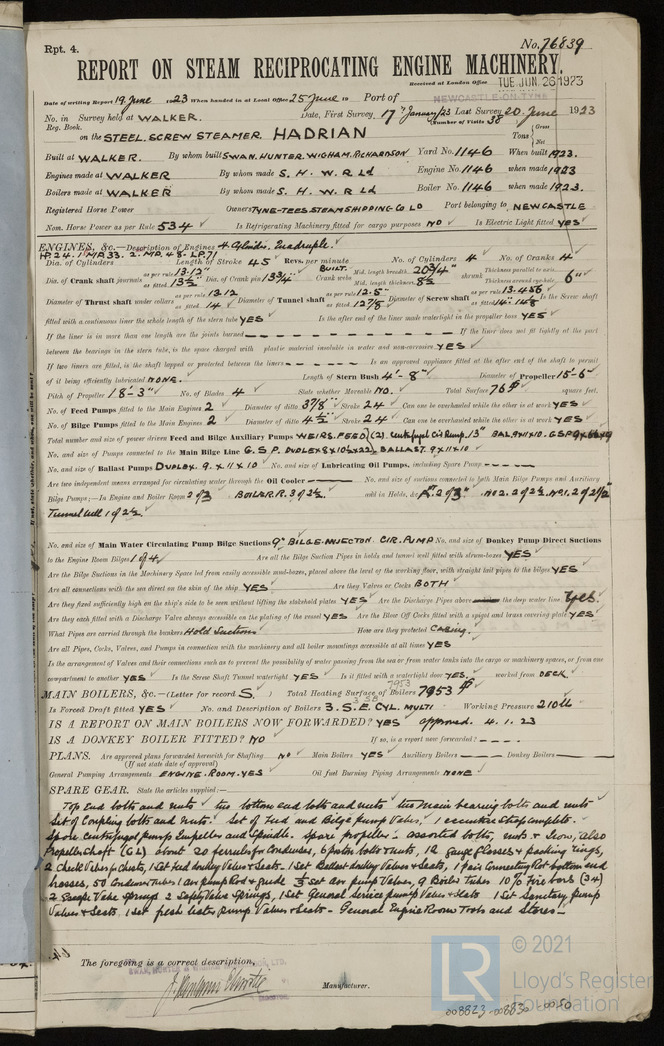 Rpt. 4.
No. 76839
REPORT ON STEAM RECIPROCATING ENGINE MACHINERY.
Received at London Office TUE. JUN. 26 1923
Date of writing Report 19 June 1923 When handed in at Local Office 25 June 19 Port of NEWCASTLE-ON-TYNE
No. in Survey held at WALKER. Date, First Survey 17th January/23 Last Survey 20 June 1923
Reg. Book. Number of Visits 38
on the STEEL. SCREW STEAMER. HADRIAN Tons { Gross Net
Built at WALKER. By whom built SWAN. HUNTER. WIGHAM. RICHARDSON Yard No. 1146 When built 1923.
Engines made at WALKER By whom made S. H. W. R Ld Engine No. 1146 when made 1923
Boilers made at WALKER By whom made S. H. W. R Ld Boiler No. 1146 when made 1923.
Registered Horse Power Owners TYNE-TEES. STEAM SHIPPING. Co LD Port belonging to NEWCASTLE
Nom. Horse Power as per Rule 534 Is Refrigerating Machinery fitted for cargo purposes NO Is Electric Light fitted YES
ENGINES, &c.—Description of Engines 4 Cylinder. Quadruple.
HP. 24. 1st MP. 33. 2. MP. 48. LP. 71
Dia. of Cylinders Length of Stroke 45 Revs. per minute No. of Cylinders 4 No. of Cranks 4
Dia. of Crank shaft journals as per rule 13.12" as fitted 13½" Dia. of Crank pin 13¾" Crank webs BUILT. Mid. length breadth 20¾" Mid. length thickness 8½ shrunk Thickness parallel to axis Thickness around eye-hole 6"
Diameter of Thrust shaft under collars as per rule 13.12 as fitted 14 Diameter of Tunnel shaft as per rule 12.5" as fitted 12⅞ Diameter of Screw shaft as per rule 13.456 as fitted 14. Is the Screw shaft
fitted with a continuous liner the whole length of the stern tube YES Is the after end of the liner made watertight in the propeller boss YES
If the liner is in more than one length are the joints burned — If the liner does not fit tightly at the part
between the bearings in the stern tube, is the space charged with plastic material insoluble in water and non-corrosive YES
If two liners are fitted, is the shaft lapped or protected between the liners — Is an approved appliance fitted at the after end of the shaft to permit
of it being efficiently lubricated NONE. Length of Stern Bush 4'-8" Diameter of Propeller 15'-6"
Pitch of Propeller 18'-3" No. of Blades 4 State whether Moveable NO. Total Surface 76 square feet.
No. of Feed Pumps fitted to the Main Engines 2 Diameter of ditto 3⅞" Stroke 24 Can one be overhauled while the other is at work YES
No. of Bilge Pumps fitted to the Main Engines 2 Diameter of ditto 4½" Stroke 24 Can one be overhauled while the other is at work YES
Total number and size of power driven Feed and Bilge Auxiliary Pumps WEIRS. FEED (2) Centrifugal Cir Pump. 13" BAL. 9x11x10. G.S.P.
No. and size of Pumps connected to the Main Bilge Line G. S. P. DUPLEX BALLAST. 9x11x10
No. and size of Ballast Pumps DUPLEX. 9. x 11 x 10 No. and size of Lubricating Oil Pumps, including Spare Pump —
Are two independent means arranged for circulating water through the Oil Cooler — No. and size of suctions connected to both Main Bilge Pumps and Auxiliary
Bilge Pumps;—In Engine and Boiler Room 2 of 3 BOILER. R. 3 of 2½ and in Holds, &c 2 of 3" NO 2. 2 of 2½ NO. 1. 2 of 2½"
Tunnel Well 1 of 2½
No. and size of Main Water Circulating Pump Bilge Suctions 9" BILGE-INJECTON CIR. PUMP No. and size of Donkey Pump Direct Suctions
to the Engine Room Bilges 1 of 4 Are all the Bilge Suction Pipes in holds and tunnel well fitted with strum-boxes YES
Are the Bilge Suctions in the Machinery Space led from easily accessible mud-boxes, placed above the level of the working floor, with straight tail pipes to the bilges YES
Are all connections with the sea direct on the skin of the ship YES Are they Valves or Cocks BOTH
Are they fixed sufficiently high on the ship's side to be seen without lifting the stokehold plates YES Are the Discharge Pipes above the deep water line Yes.
Are they each fitted with a Discharge Valve always accessible on the plating of the vessel YES Are the Blow Off Cocks fitted with a spigot and brass covering plate YES
What Pipes are carried through the bunkers Hold Suctions How are they protected CASING.
Are all Pipes, Cocks, Valves, and Pumps in connection with the machinery and all boiler mountings accessible at all times YES
Is the arrangement of Valves and their connections such as to prevent the possibility of water passing from the sea or from water tanks into the cargo or machinery spaces, or from one
compartment to another YES Is the Screw Shaft Tunnel watertight YES Is it fitted with a watertight door YES. worked from DECK
MAIN BOILERS, &c.—(Letter for record S.) Total Heating Surface of Boilers 7953
Is Forced Draft fitted YES No. and Description of Boilers 3. S. E. CYL. MULTI Working Pressure 210 lb
IS A REPORT ON MAIN BOILERS NOW FORWARDED? YES approved. 4. 1. 23
IS A DONKEY BOILER FITTED? NO If so, is a report now forwarded? —
PLANS. Are approved plans forwarded herewith for Shafting NO Main Boilers YES Auxiliary Boilers — Donkey Boilers —
(If not state date of approval)
General Pumping Arrangements ENGINE. ROOM. YES Oil fuel Burning Piping Arrangements NONE
SPARE GEAR. State the articles supplied:—
Top End bolts and nuts – two bottom end bolts and nuts two main bearing bolts and nuts
Set of Coupling bolts and nuts. Set of Feed and Bilge pump Valves, 1 eccentric Strap Complete.
Spare Centrifugal pump Empeller and Spindle. spare propeller – assorted bolts, nuts & Iron, also
Propeller Shaft (CL) about 20 ferruls for Condenser, 6 piston bolts & nuts, 12 gauge glasses & packing rings,
2 Check Valves for Chests, 1 Set Feed donkey Valves & Seats. 1 Set Ballast donkey Valves & Seats, 1 pair Connecting Rod bottom end
brasses, 50 Condenser Tubes 1 air pump Rod & guide ⅓ set air pump Valves, 9 Boiler tubes 10% Fire bars (34)
2 Escape Valve Springs 2 Safety Valve Springs, 1 Set General Service pump Valves & Seats 1 Set Sanitary pump
Valves & Seats 1 Set fresh water pump Valves & Seats – General Engine Room Tools and Stores –
The foregoing is a correct description,
Manufacturer.
© 2021
LR Lloyd's Register
Foundation
008823-008830-0050